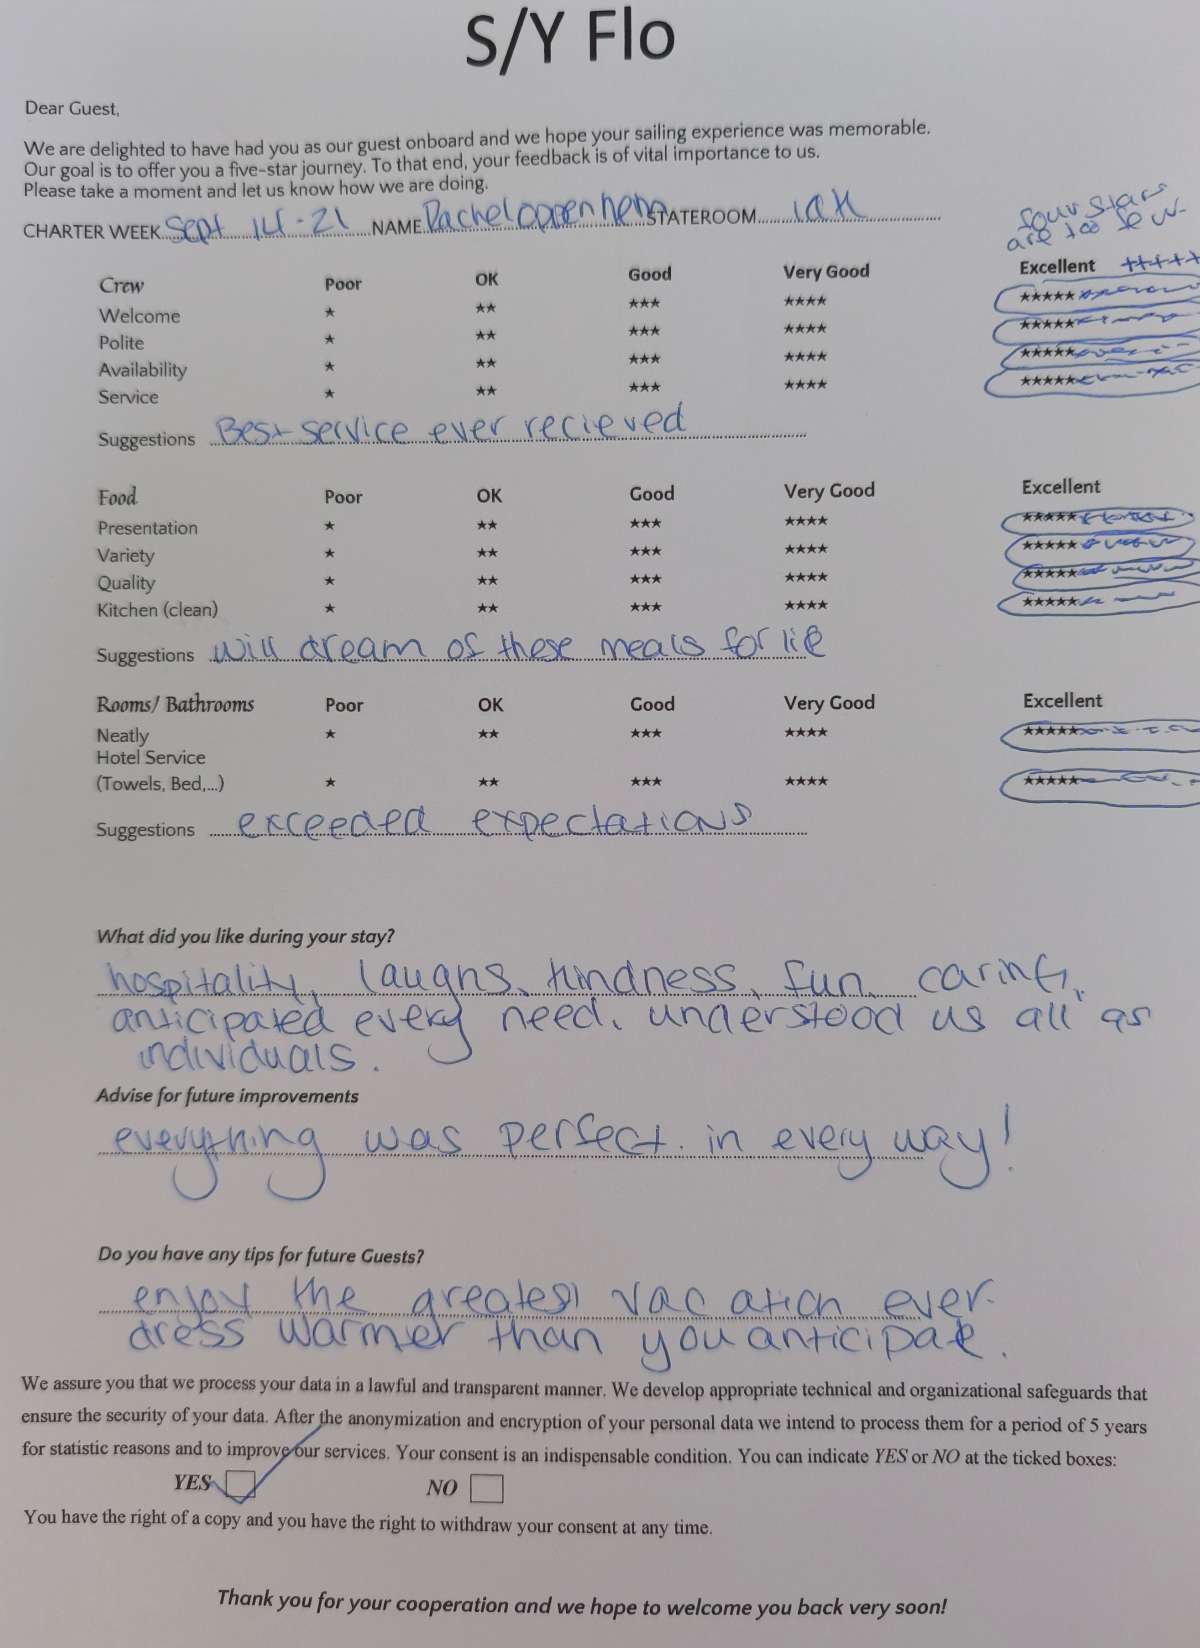 S/Y Flo
Dear Guest,
We are delighted to have had you as our guest onboard and we hope your sailing experience was memorable.
Our goal is to offer you a five-star journey. To that end, your feedback is of vital importance to us.
Please take a moment and let us know how we are doing.
four stars
are too few
CHARTER WEEK Sept 14-21 NAME Rachel oppenheim STATEROOM
Crew Poor OK Good Very Good Excellent +++++
Welcome ★ ★★ ★★★ ★★★★ ★★★★★
Polite ★ ★★ ★★★ ★★★★ ★★★★★
Availability ★ ★★ ★★★ ★★★★ ★★★★★
Service ★ ★★ ★★★ ★★★★ ★★★★★
Suggestions Best service ever recieved
Food Poor OK Good Very Good Excellent
Presentation ★ ★★ ★★★ ★★★★ ★★★★★
Variety ★ ★★ ★★★ ★★★★ ★★★★★
Quality ★ ★★ ★★★ ★★★★ ★★★★★
Kitchen (clean) ★ ★★ ★★★ ★★★★ ★★★★★
Suggestions will dream of these meals for life
Rooms/ Bathrooms Poor OK Good Very Good Excellent
Neatly ★ ★★ ★★★ ★★★★ ★★★★★
Hotel Service
(Towels, Bed,...) ★ ★★ ★★★ ★★★★ ★★★★★
Suggestions exceeded expectations
What did you like during your stay?
hospitality, laughs, kindness, fun, caring,
anticipated every need, understood us all as
individuals.
Advise for future improvements
everything was perfect in every way!
Do you have any tips for future Guests?
enjoy the greatest vacation ever.
dress warmer than you anticipate.
We assure you that we process your data in a lawful and transparent manner. We develop appropriate technical and organizational safeguards that
ensure the security of your data. After the anonymization and encryption of your personal data we intend to process them for a period of 5 years
for statistic reasons and to improve our services. Your consent is an indispensable condition. You can indicate YES or NO at the ticked boxes:
YES NO
You have the right of a copy and you have the right to withdraw your consent at any time.
Thank you for your cooperation and we hope to welcome you back very soon!